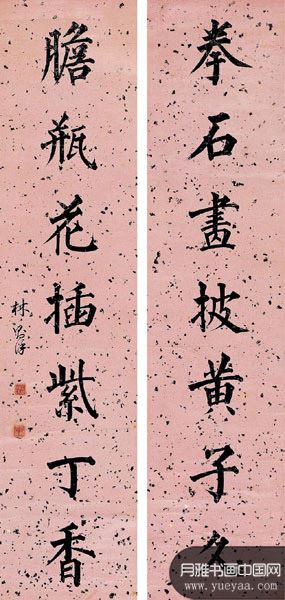 拳石畫披黃子久
膽瓶花插紫丁香
林則徐
月雅书画中国网
www.yueyaa.com